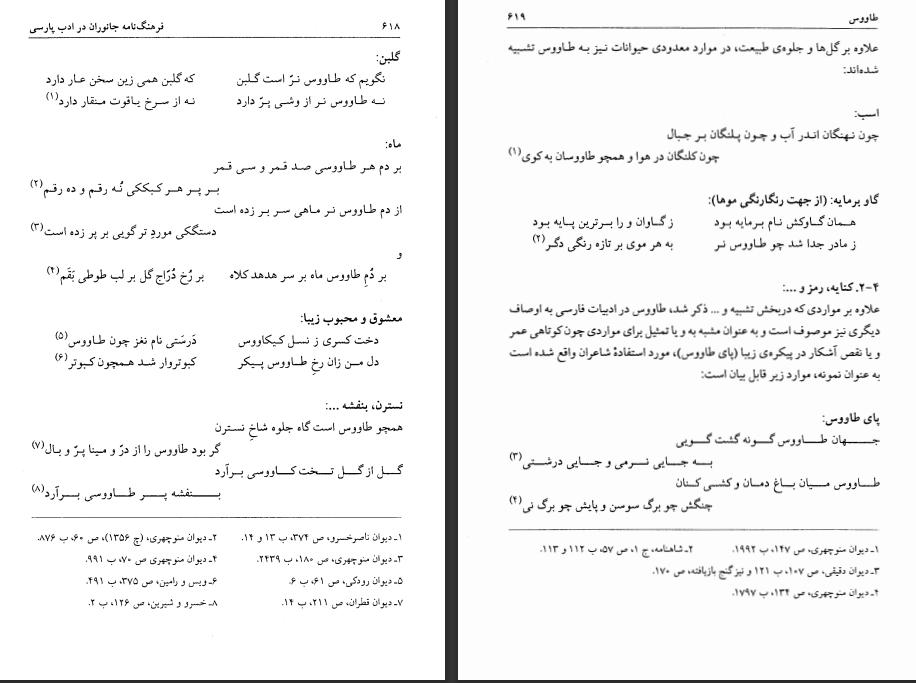 ۶۱۸ فرهنگ‌نامه جانوران در ادب پارسی
گلبن:
نگویم که طاووس نرّ است گلبن که گلبن همی زین سخن عار دارد
نه طاووس نر از وشی پرّ دارد نه از سرخ یاقوت منقار دارد(۱)
ماه:
بر دم هر طاووسی صد قمر و سی قمر
بر پر هر کبککی نُه رقم و ده رقم(۲)
از دم طاووس نر ماهی سر بر زده است
دستگکی موردِ تر گویی بر پر زده است(۳)
و
بر دُمِ طاووس ماه بر سر هدهد کلاه بر رُخ دُرّاج گل بر لب طوطی بَقَم(۴)
معشوق و محبوب زیبا:
دخت کسری ز نسل کیکاووس دَرسَتی نام نغز چون طاووس(۵)
دل من زان رخِ طاووس پیکر کبوتروار شد همچون کبوتر(۶)
نسترن، بنفشه ...:
همچو طاووس است گاه جلوه شاخِ نسترن
گر بود طاووس را از درّ و مینا پرّ و بال(۷)
گل از گل تخت کاووسی برآرد
بنفشه پر طاووسی برآرد(۸)
۱ـ دیوان ناصرخسرو، ص ۳۷۴، ب ۱۳ و ۱۴. ۲ـ دیوان منوچهری، (چ ۱۳۵۶)، ص ۶۰، ب ۸۷۶.
۳ـ دیوان منوچهری، ص ۱۸۰، ب ۲۴۳۹. ۴ـ دیوان منوچهری ص ۷۰، ب ۹۹۱.
۵ـ دیوان رودکی، ص ۶۱، ب ۶. ۶ـ ویس و رامین، ص ۳۷۵، ب ۴۹۱.
۷ـ دیوان قطران، ص ۲۱۱، ب ۱۴. ۸ـ خسرو و شیرین، ص ۱۲۶، ب ۲.
طاووس ۶۱۹
علاوه بر گل‌ها و جلوه‌ی طبیعت، در موارد معدودی حیوانات نیز به طاووس تشبیه
شده‌اند:
اسب:
چون نهنگان اندر آب و چون پلنگان بر جبال
چون کلنگان در هوا و همچو طاووسان به کوی(۱)
گاو برمایه: (از جهت رنگارنگی موها):
همان گاوکش نام برمایه بود ز گاوان و را برترین پایه بود
ز مادر جدا شد چو طاووس نر به هر موی بر تازه رنگی دگر(۲)
۴-۲. کنایه، رمز و ...:
علاوه بر مواردی که دربخش تشبیه و ... ذکر شد، طاووس در ادبیات فارسی به اوصاف
دیگری نیز موصوف است و به عنوان مشبه به و یا تمثیل برای مواردی چون کوتاهی عمر
و یا نقص آشکار در پیکره‌ی زیبا (پای طاووس)، مورد استفادهٔ شاعران واقع شده است
به عنوان نمونه، موارد زیر قابل بیان است:
پای طاووس:
جهان طاووس گونه گشت گویی
به جایی نرمی و جایی درشتی(۳)
طاووس میان باغ دمان و کشی کنان
چنگش چو برگ سوسن و پایش چو برگ نی(۴)
۱ـ دیوان منوچهری، ص ۱۴۷، ب ۱۹۹۲. ۲ـ شاهنامه، ج ۱، ص ۵۷، ب ۱۱۲ و ۱۱۳.
۳ـ دیوان دقیقی، ص ۱۰۷، ب ۱۲۱ و نیز گنج بازیافته، ص ۱۷۰.
۴ـ دیوان منوچهری، ص ۱۳۴، ب ۱۷۹۷.